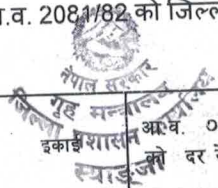 .व. 2081/82 को जिल्ल
नेपाल सरकार
गृह मन्त्रालय
जिल्ला प्रशासन
स्याङ्जा
इकाइ
आ.व. ०
को दर